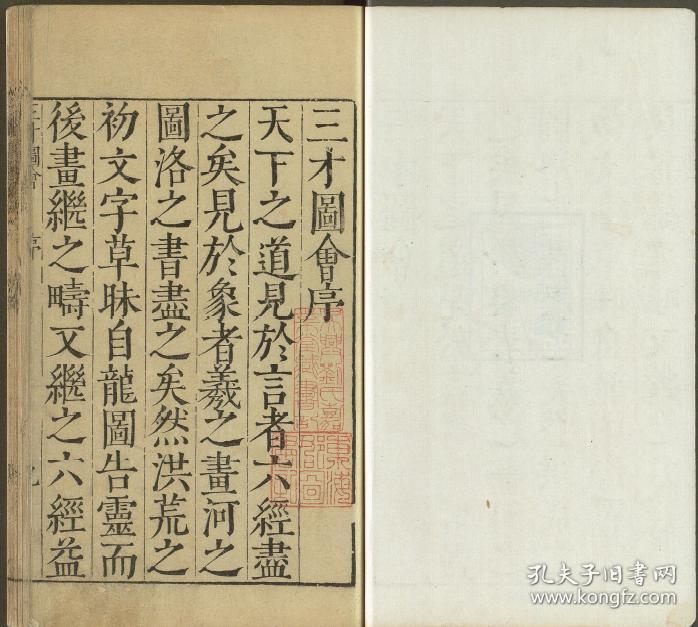 三才圖會序
天下之道見於言者六經盡
之矣見於象者羲之畫河之
圖洛之書盡之矣然洪荒之
初文字草昧自龍圖告靈而
後畫繼之疇又繼之六經益
三才圖會 序
孔夫子旧书网
www.kongfz.com